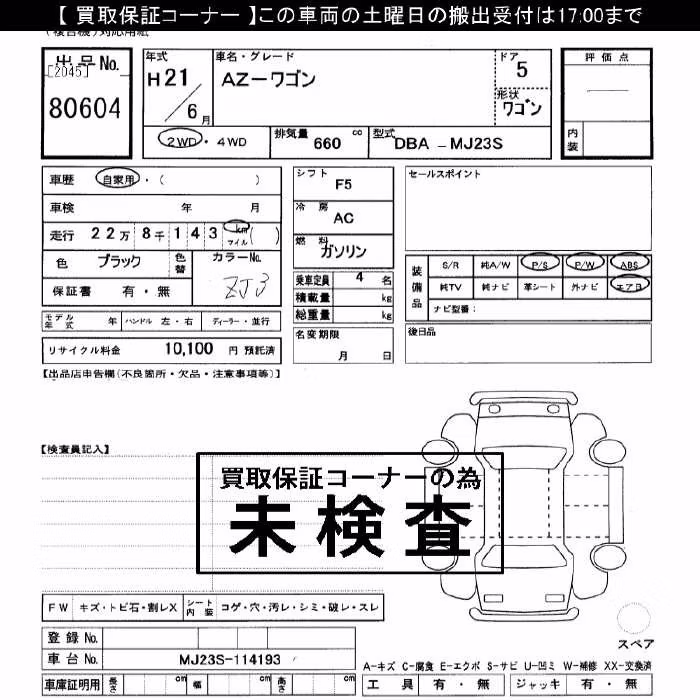 【 買取保証コーナー 】この車両の土曜日の搬出受付は17:00まで
(複合機)対応用紙
出品No.
[2045]
80604
年式
H21/6月
車名・グレード
AZーワゴン
ドア
5
形状
ワゴン
評価点
内装
2WD・4WD
排気量 660 cc
型式 DBA－MJ23S
車歴 自家用・( )
車検 年 月
走行 22万8千143 km マイル ( )
色 ブラック 色替 カラーNo. ZJ3
保証書 有・無
シフト F5
冷房 AC
燃料 ガソリン
乗車定員 4 名
積載量 kg
総重量 kg
セールスポイント
装備品
S/R 純A/W P/S P/W ABS
純TV 純ナビ 革シート 外ナビ エアB
ナビ型番：
モデル年式 年 ハンドル 左・右 ディーラー・並行
リサイクル料金 10,100 円 預託済
名変期限 月 日
後日品
【出品店申告欄(不良箇所・欠品・注意事項等)】
【検査員記入】
買取保証コーナーの為
未検査
FW キズ・トビ石・割レX シート内装 コゲ・穴・汚レ・シミ・破レ・スレ
登録No.
車台No. MJ23S-114193
車庫証明用 長さ cm 幅 cm 高さ cm
スペア
A-キズ C-腐食 E-エクボ S-サビ U-凹ミ W-補修 XX-交換済
工具 有・無 ジャッキ 有・無